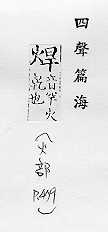 四聲篇海
焊
音罕火
乾也
(火部
P.449)